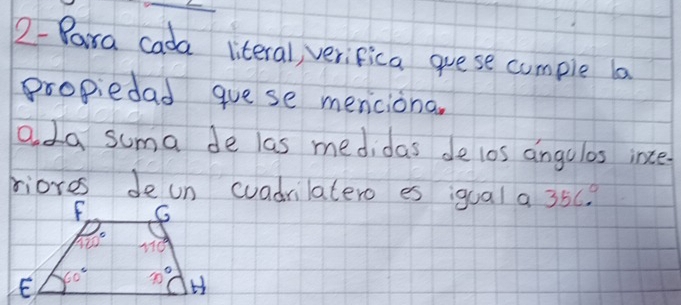 2- Para cada literal, verifica que se cumple la
propiedad que se menciona.
a. La suma de las medidas de los ángulos inte-
riores de un cuadrilatero es igual a 360°.
F G
120° 110°
E 60° 70° H